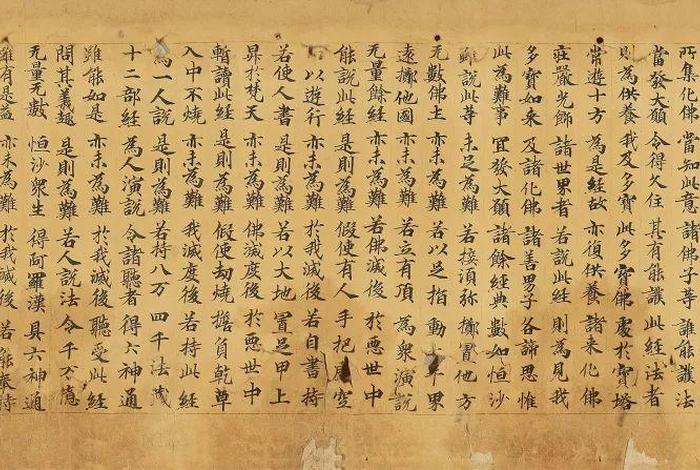 所集化佛 當知此意 諸佛子等 誰能護法
當發大願 令得久住 其有能護 此經法者
則為供養 我及多寶 此多寶佛 處於寶塔
常遊十方 為是經故 亦復供養 諸來化佛
莊嚴光飾 諸世界者 若說此經 則為見我
多寶如來 及諸化佛 諸善男子 各諦思惟
此為難事 冝發大願 諸餘經典 數如恒沙
雖說此等 未足為難 若接須弥 擲置他方
无數佛土 亦未為難 若以足指 動千界
遠擲他國 亦未為難 若立有頂 為衆演說
无量餘經 亦未為難 若佛滅後 於惡世中
能說此經 是則為難 假使有人 手把空
以遊行 亦未為難 於我滅後 若自書持
若使人書 是則為難 若以大地 置足甲上
昇於梵天 亦未為難 佛滅度後 於惡世中
暫讀此經 是則為難 假使劫燒 擔負乾草
入中不燒 亦未為難 我滅度後 若持此經
為一人說 是則為難 若持八万 四千法藏
十二部經 為人演說 令諸聽者 得六神通
雖能如是 亦未為難 於我滅後 聽受此經
問其義趣 是則為難 若人說法 令千万億
无量无數 恒沙衆生 得阿羅漢 具六神通
雖有是益 亦未為難 於我滅後 若能奉持